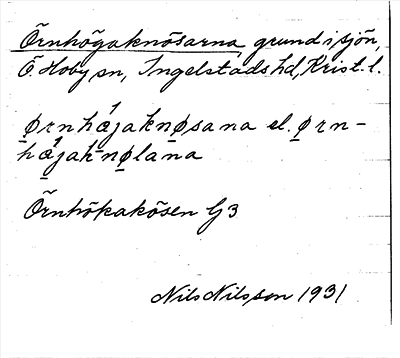 Örnhögaknösarna, grund i sjön,
Ö Hoby sn, Ingelstads hd, Krist. l.
ørnhǿjaknøsana el. ørn-
hǿjaknølana
Örnhökakösen G3
Nils Nilsson 1931